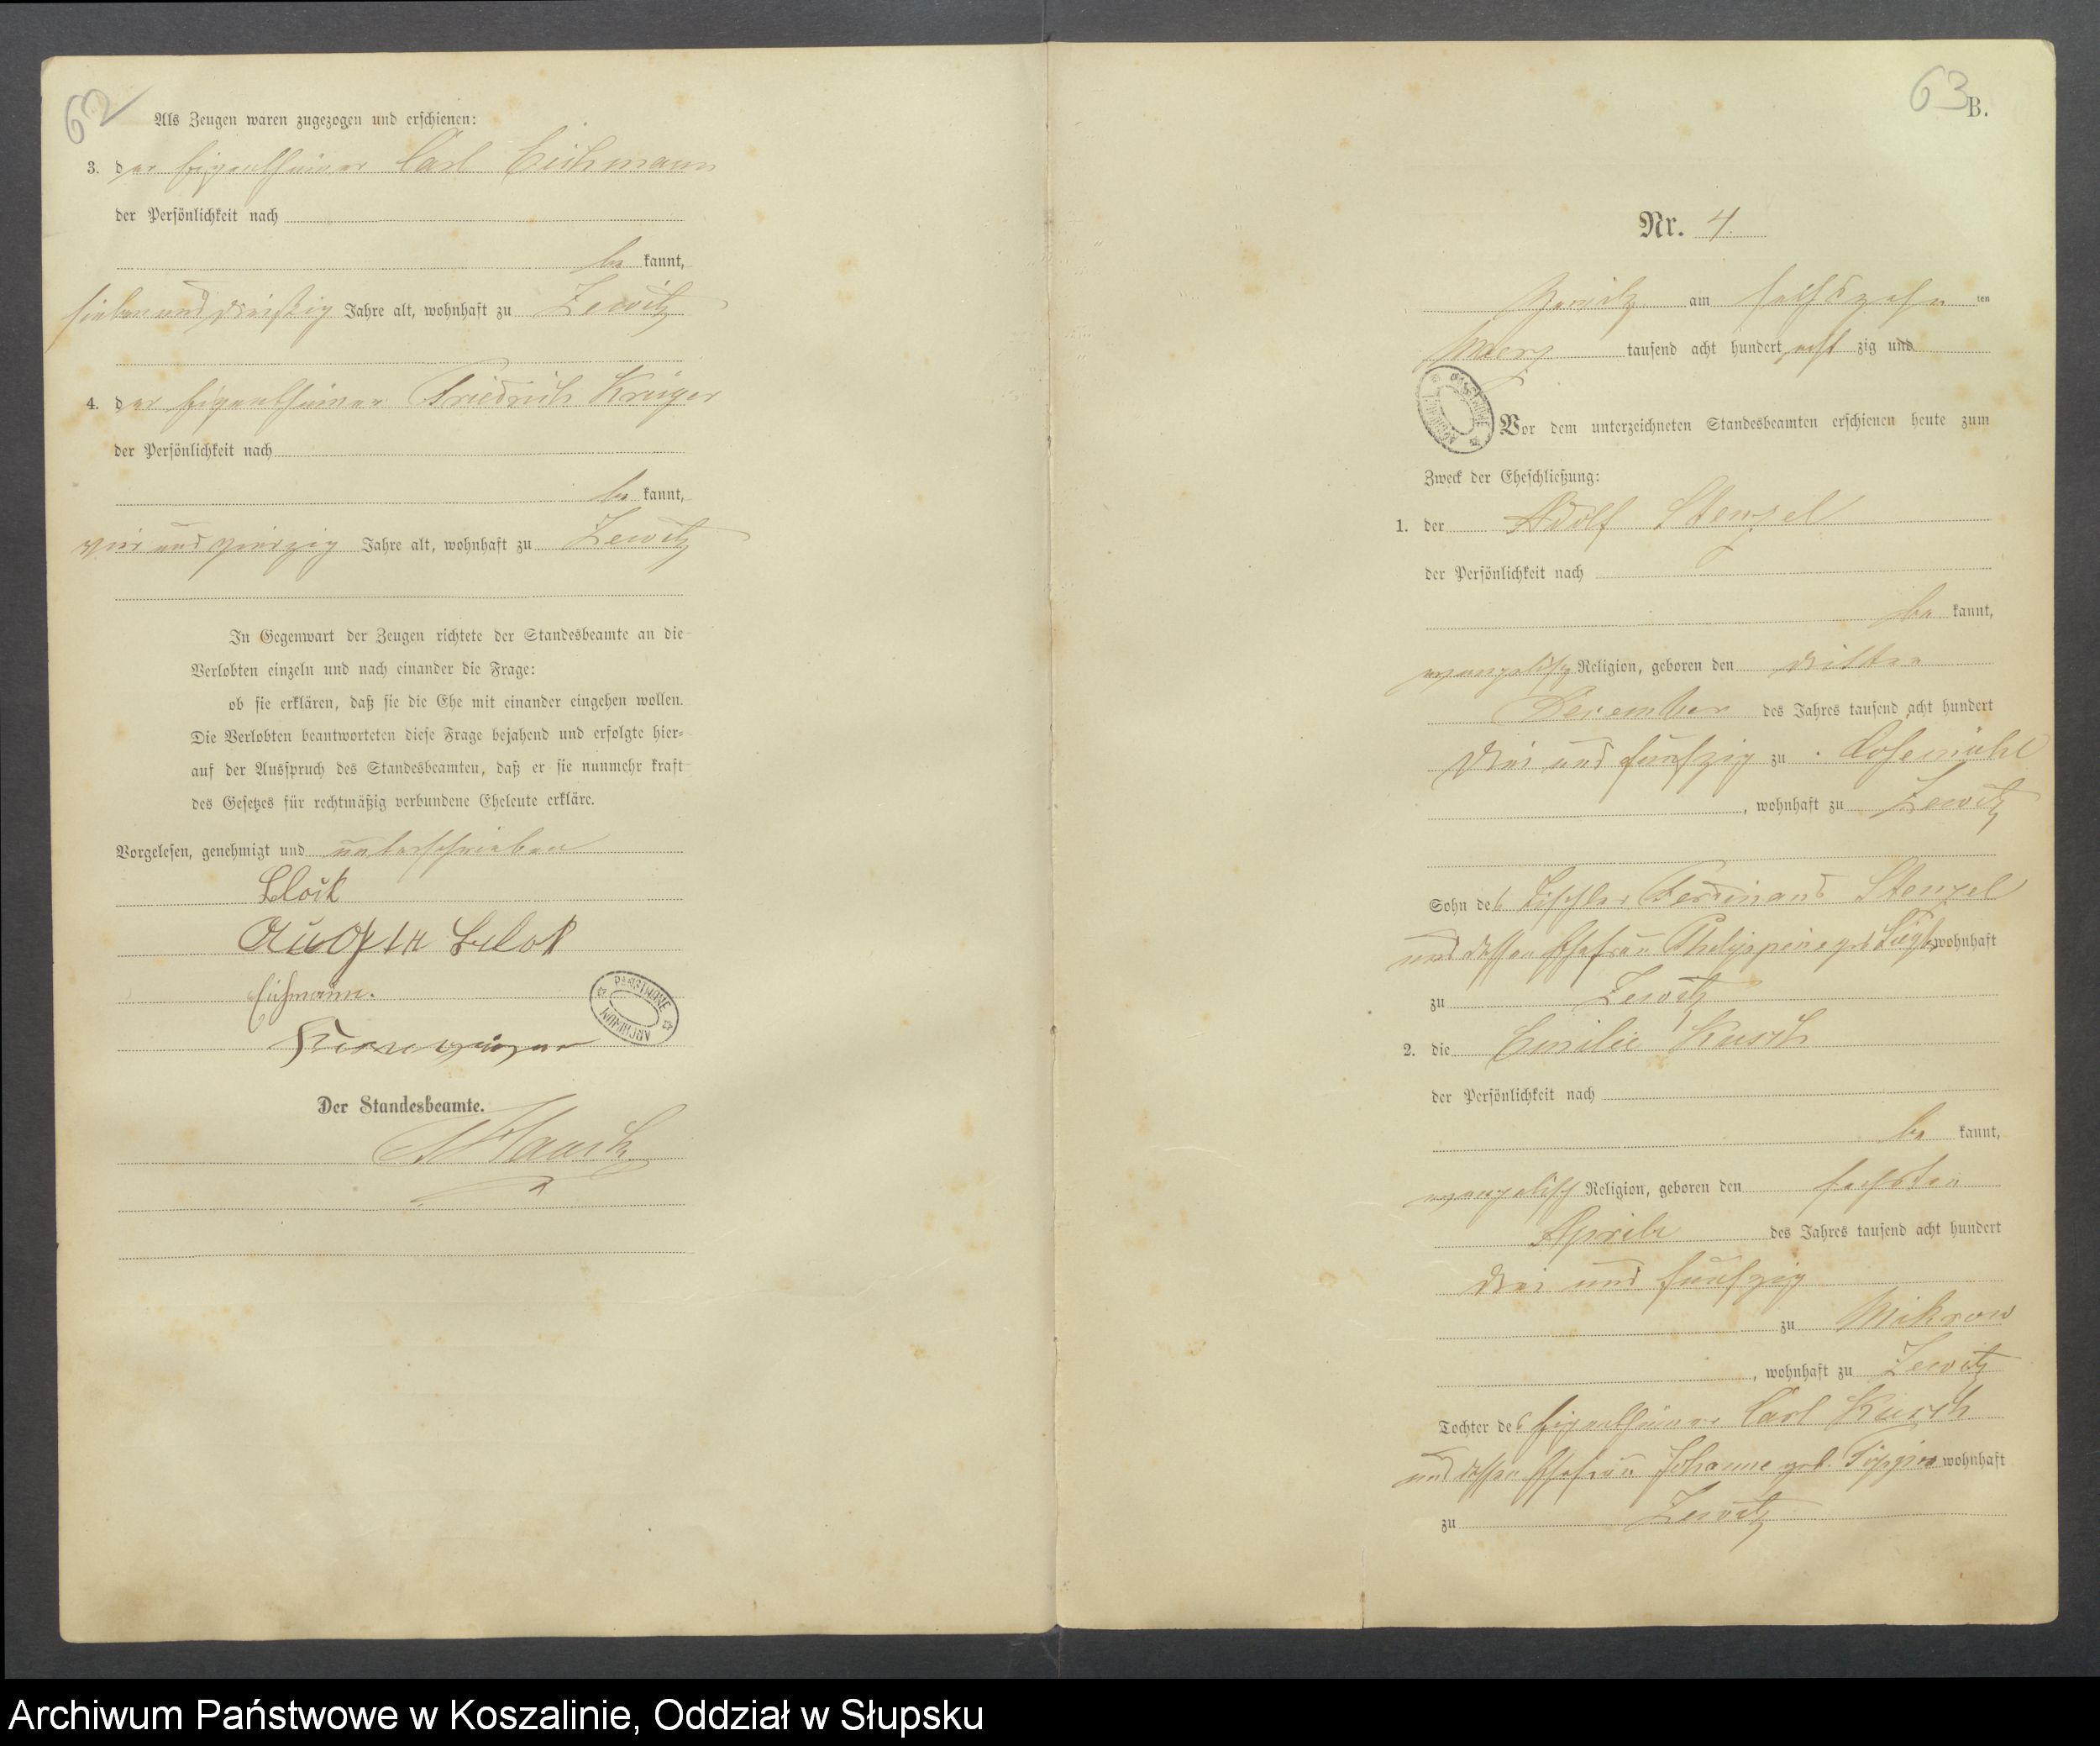 62
Als Zeugen waren zugezogen und erschienen:
3. der Eigenthümer Carl Eichmann
der Persönlichkeit nach
be kannt,
sieben und dreißig Jahre alt, wohnhaft zu Zewitz
4. der Eigenthümer Friedrich Krüger
der Persönlichkeit nach
be kannt,
vier und vierzig Jahre alt, wohnhaft zu Zewitz
In Gegenwart der Zeugen richtete der Standesbeamte an die
Verlobten einzeln und nach einander die Frage:
ob sie erklären, daß sie die Ehe mit einander eingehen wollen.
Die Verlobten beantworteten diese Frage bejahend und erfolgte hier-
auf der Ausspruch des Standesbeamten, daß er sie nunmehr kraft
des Gesetzes für rechtmäßig verbundene Eheleute erkläre.
Vorgelesen, genehmigt und unterschrieben
Block
Eichmann.
PAŃSTWOWE ARCHIWUM
Der Standesbeamte.
63
B.
Nr. 4.
Zewitz am sechszehn ten
Maerz tausend acht hundert acht zig und
PAŃSTWOWE ARCHIWUM
Vor dem unterzeichneten Standesbeamten erschienen heute zum
Zweck der Eheschließung:
1. der Adolf Stenzel
der Persönlichkeit nach
be kannt,
evangelisch Religion, geboren den dritten
December des Jahres tausend acht hundert
drei und fünfzig zu
, wohnhaft zu Zewitz
Sohn des Tischler Ferdinand Stenzel
und dessen Ehefrau Philippine geb. wohnhaft
zu Zewitz
2. die Emilie Kusch
der Persönlichkeit nach
be kannt,
evangelisch Religion, geboren den sechsten
April des Jahres tausend acht hundert
drei und fünfzig
zu Mikrow
, wohnhaft zu Zewitz
Tochter des Eigenthümers Carl Kusch
und dessen Ehefrau Johanne geb. wohnhaft
zu Zewitz
Archiwum Państwowe w Koszalinie, Oddział w Słupsku